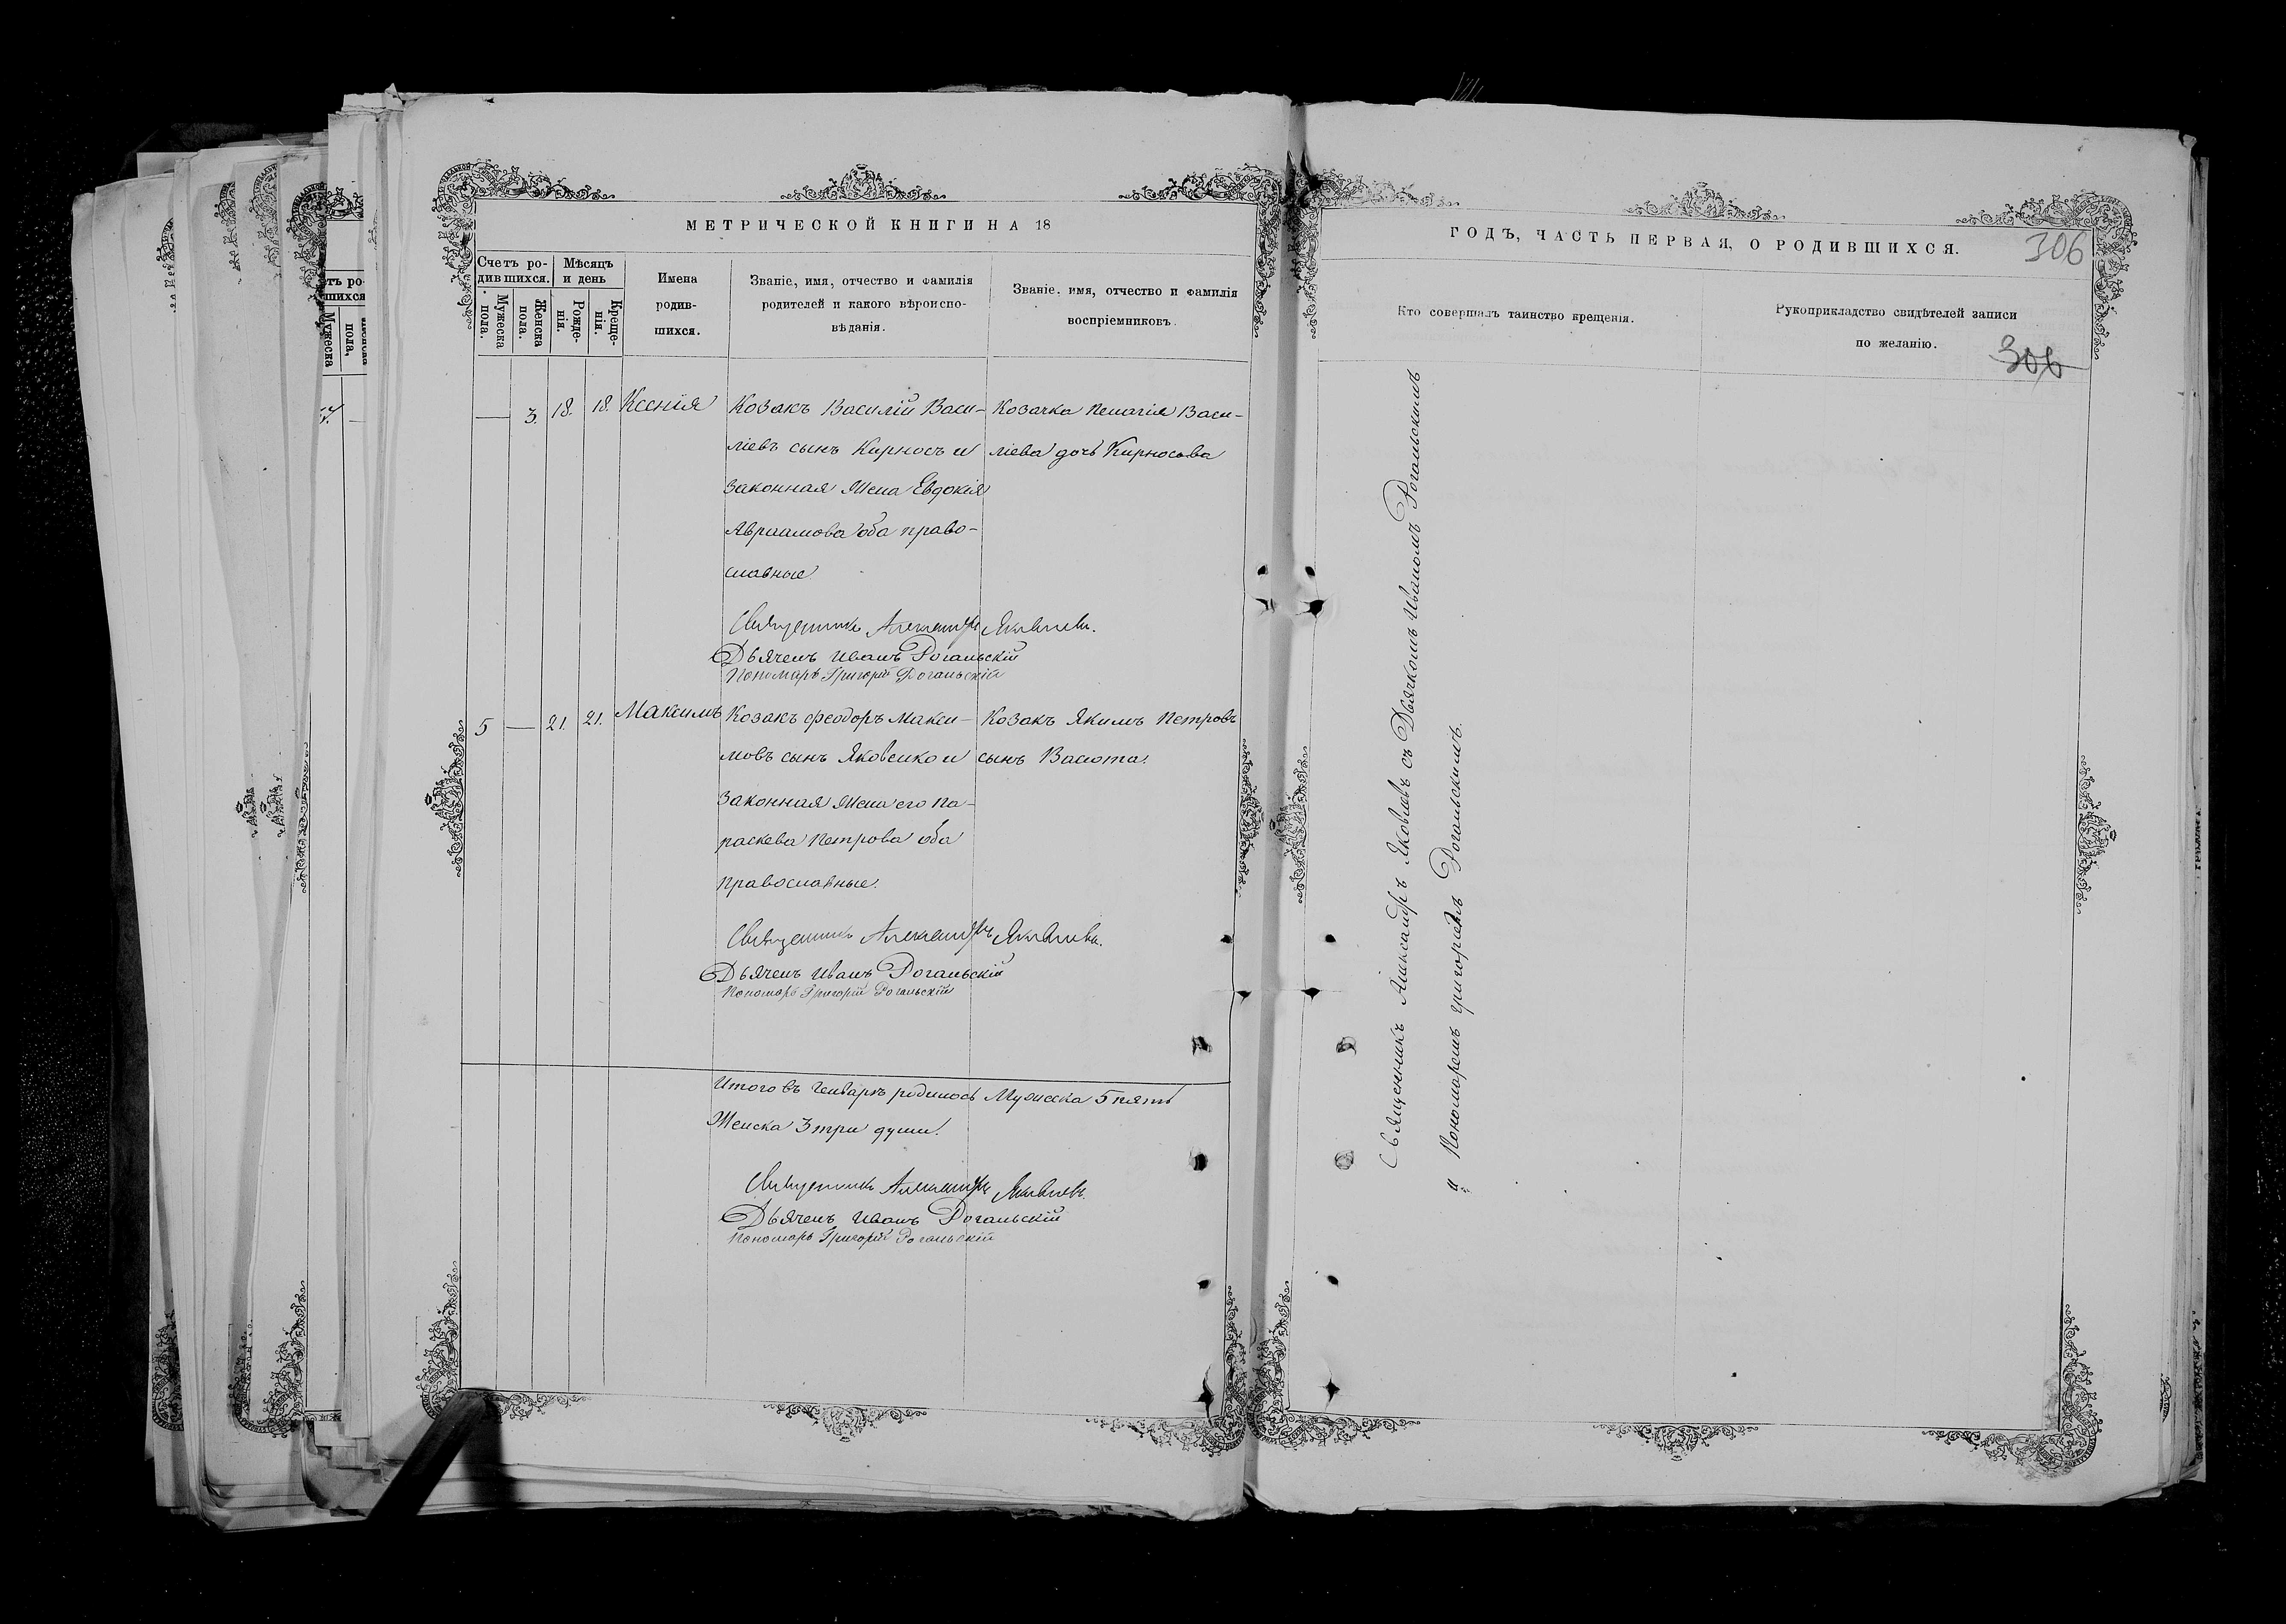 МЕТРИЧЕСКОЙ КНИГИ НА 18
Счетъ ро-
дившихся.
Мѣсяцъ
и день
Мужеска
пола.
Женска
пола.
Рожде-
нія.
Креще-
нія.
Имена
родив-
шихся.
Званіе, имя, отчество и фамилія
родителей и какого вѣроиспо-
вѣданія.
Званіе, имя, отчество и фамилія
воспріемниковъ.
— 3. 18. 18. Ксенія
Козакъ Василій Васи-
ліевъ сынъ Кирносъ и
законная жена Евдокія
Авраамова оба право-
славные
Козачка Пелагія Васи-
ліева дочь Кирносова
Священникъ Александръ Яковлевъ.
Дьячекъ Иванъ Рогальскій
Пономарь Григорій Рогальскій
5 — 21. 21. Максимъ
Козакъ Феодоръ Макси-
мовъ сынъ Яковенко и
законная жена его Па-
раскева Петрова оба
православные.
Козакъ Якимъ Петровъ
сынъ Васюта.
Священникъ Александръ Яковлевъ.
Дьячекъ Иванъ Рогальскій
Пономарь Григорій Рогальскій
Итого въ Генварѣ родилось Мужеска 5 пять
Женска 3 три души.
Священникъ Александръ Яковлевъ.
Дьячекъ Иванъ Рогальскій
Пономарь Григорій Рогальскій
ГОДЪ, ЧАСТЬ ПЕРВАЯ, О РОДИВШИХСЯ.
306
Кто совершалъ таинство крещенія.
Рукоприкладство свидѣтелей записи
по желанію.
306
Священникъ Александръ Яковлевъ съ Дьячкомъ Иваномъ Рогальскимъ
и Пономаремъ Григоріемъ Рогальскимъ.